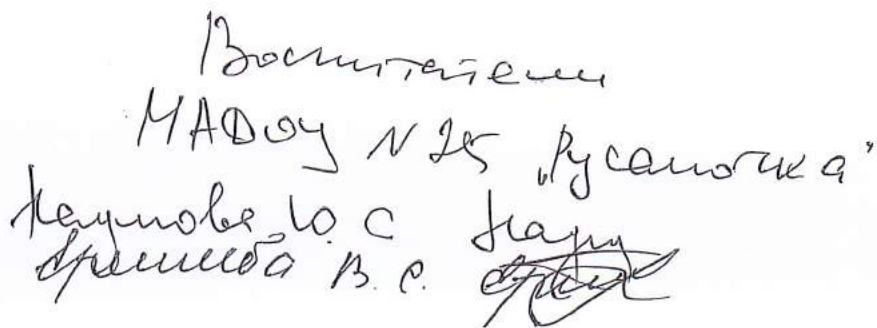 Воспитатели
МАДОУ N 25 „Русалочка"
Наумова Ю. С
В. С.